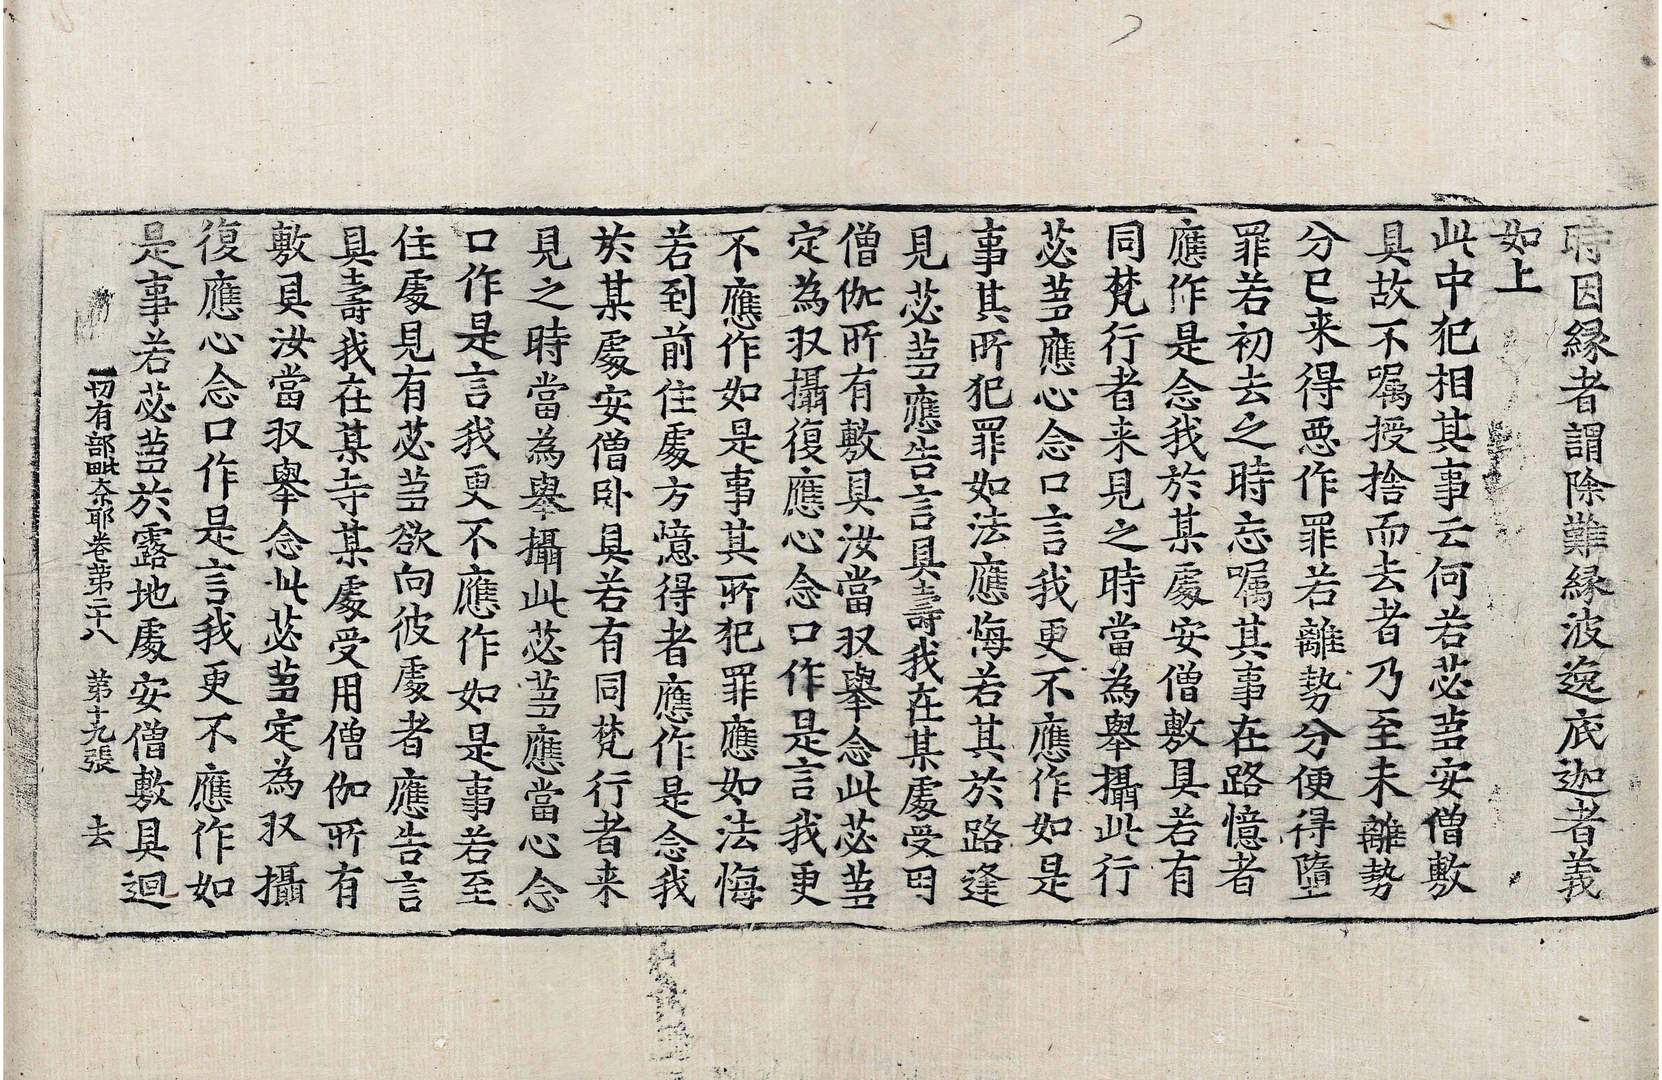 時因縁者謂除難縁波逸底迦者義
如上
此中犯相其事云何若苾芻安僧敷
具故不囑授捨而去者乃至未離勢
分已来得惡作罪若離勢分便得墮
罪若初去之時忘囑其事在路憶者
應作是念我於某處安僧敷具若有
同梵行者来見之時當為舉攝此行
苾芻應心念口言我更不應作如是
事其所犯罪如法應悔若其於路逢
見苾芻應告言具壽我在某處受用
僧伽所有敷具汝當収舉念此苾芻
定為収攝復應心念口作是言我更
不應作如是事其所犯罪應如法悔
若到前住處方憶得者應作是念我
於某處安僧卧具若有同梵行者来
見之時當為舉攝此苾芻應當心念
口作是言我更不應作如是事若至
住處見有苾芻欲向彼處者應告言
具壽我在某寺某處受用僧伽所有
敷具汝當収舉念此苾芻定為収攝
復應心念口作是言我更不應作如
是事若苾芻於露地處安僧敷具迴
一切有部毗奈耶卷第二十八 第十九張 去